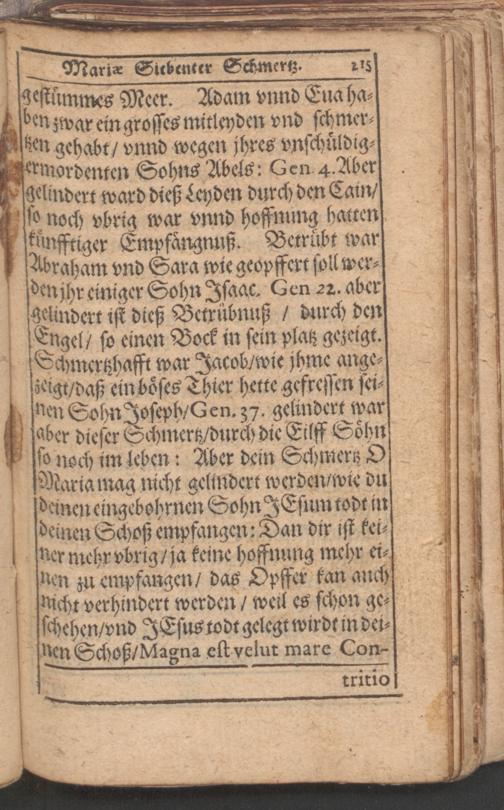 Mariæ Siebenter Schmertz. 215
gestümmes Meer. Adam vnnd Eua ha-
ben zwar ein grosses mitleyden vnd schmer-
tzen gehabt/ vnnd wegen jhres vnschüldig-
ermordenten Sohns Abels: Gen 4. Aber
gelindert ward dieß Leyden durch den Cain/
so noch vbrig war vnnd hoffnung hatten
künfftiger Empfängnuß. Betrübt war
Abraham vnd Sara wie geopffert soll wer-
den jhr einiger Sohn Isaac. Gen 22. aber
gelindert ist dieß Betrübnuß / durch den
Engel/ so einen Bock in sein platz gezeigt.
Schmertzhafft war Jacob/wie jhme ange-
zeigt/daß ein böses Thier hette gefressen sei-
nen Sohn Joseph/Gen. 37. gelindert war
aber dieser Schmertz/durch die Eilff Söhn
so noch im leben : Aber dein Schmertz O
Maria mag nicht gelindert werden/wie du
deinen eingebohrnen Sohn JEsum todt in
deinen Schoß empfangen: Dan dir ist kei-
ner mehr vbrig/ ja keine hoffnung mehr ei-
nen zu empfangen/ das Opffer kan auch
nicht verhindert werden / weil es schon ge-
schehen/vnd JEsus todt gelegt wirdt in dei-
nen Schoß/Magna est velut mare Con-
tritio